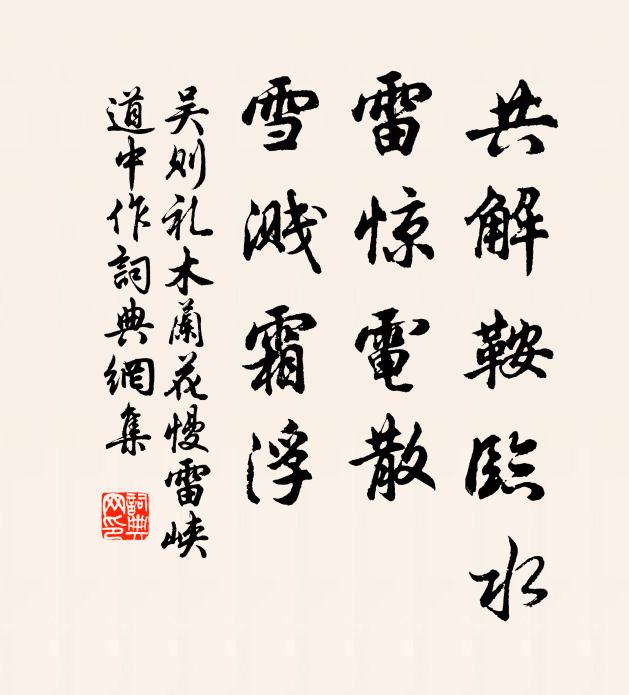 共解鞍臨水
雷惊電散
雪溅霜浮
吴则礼木蘭花慢雷峡
道中作詞典網集
詞典網印